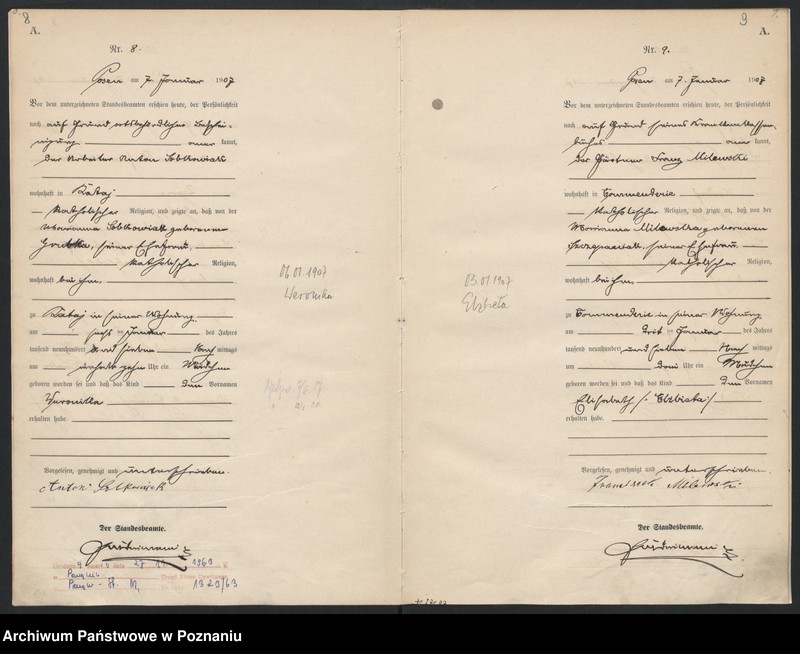 8
A.
Nr. 8.
Posen am 7. Januar 1907
Vor dem unterzeichneten Standesbeamten erschien heute, der Persönlichkeit
nach auf Grund ortsbehördlicher Beschei-
nigung aner kannt,
der Arbeiter Anton Sobkowiak
wohnhaft in Rataj
katholischer Religion, und zeigte an, daß von der
Marianna Sobkowiak geborenen
seiner Ehefrau,
katholischer Religion,
wohnhaft bei ihm,
zu Rataj in seiner Wohnung,
am sechs ten Januar des Jahres
tausend neunhundert und sieben Nach mittags
am Uhr ein Mädchen
geboren worden sei und daß das Kind den Vornamen
Veronika
erhalten habe.
Vorgelesen, genehmigt und unterschrieben.
Anton
Der Standesbeamte.
27 1963
1329/63
06.01.1907
Weronika
9
A.
Nr. 9.
Posen am 7. Januar 190
Vor dem unterzeichneten Standesbeamten erschien heute, der Persönlichkeit
nach auf Grund seines Krankenkassen-
buches aner kannt,
der Gärtner Franz Milewski
wohnhaft in Commenderie
katholischer Religion, und zeigte an, daß von der
Marianna Milewska geborenen
seiner Ehefrau
katholischer Religion,
wohnhaft bei ihm,
zu Commenderie in seiner Wohnung
am dritten Januar des Jahres
tausend neunhundert und sieben Nach mittags
um drei Uhr ein Mädchen
geboren worden sei und daß das Kind den Vornamen
Elisabeth /: Elzbieta :/
erhalten habe.
Vorgelesen, genehmigt und unterschrieben.
Milewski
Der Standesbeamte.
03.01.1907
Elżbieta
Archiwum Państwowe w Poznaniu